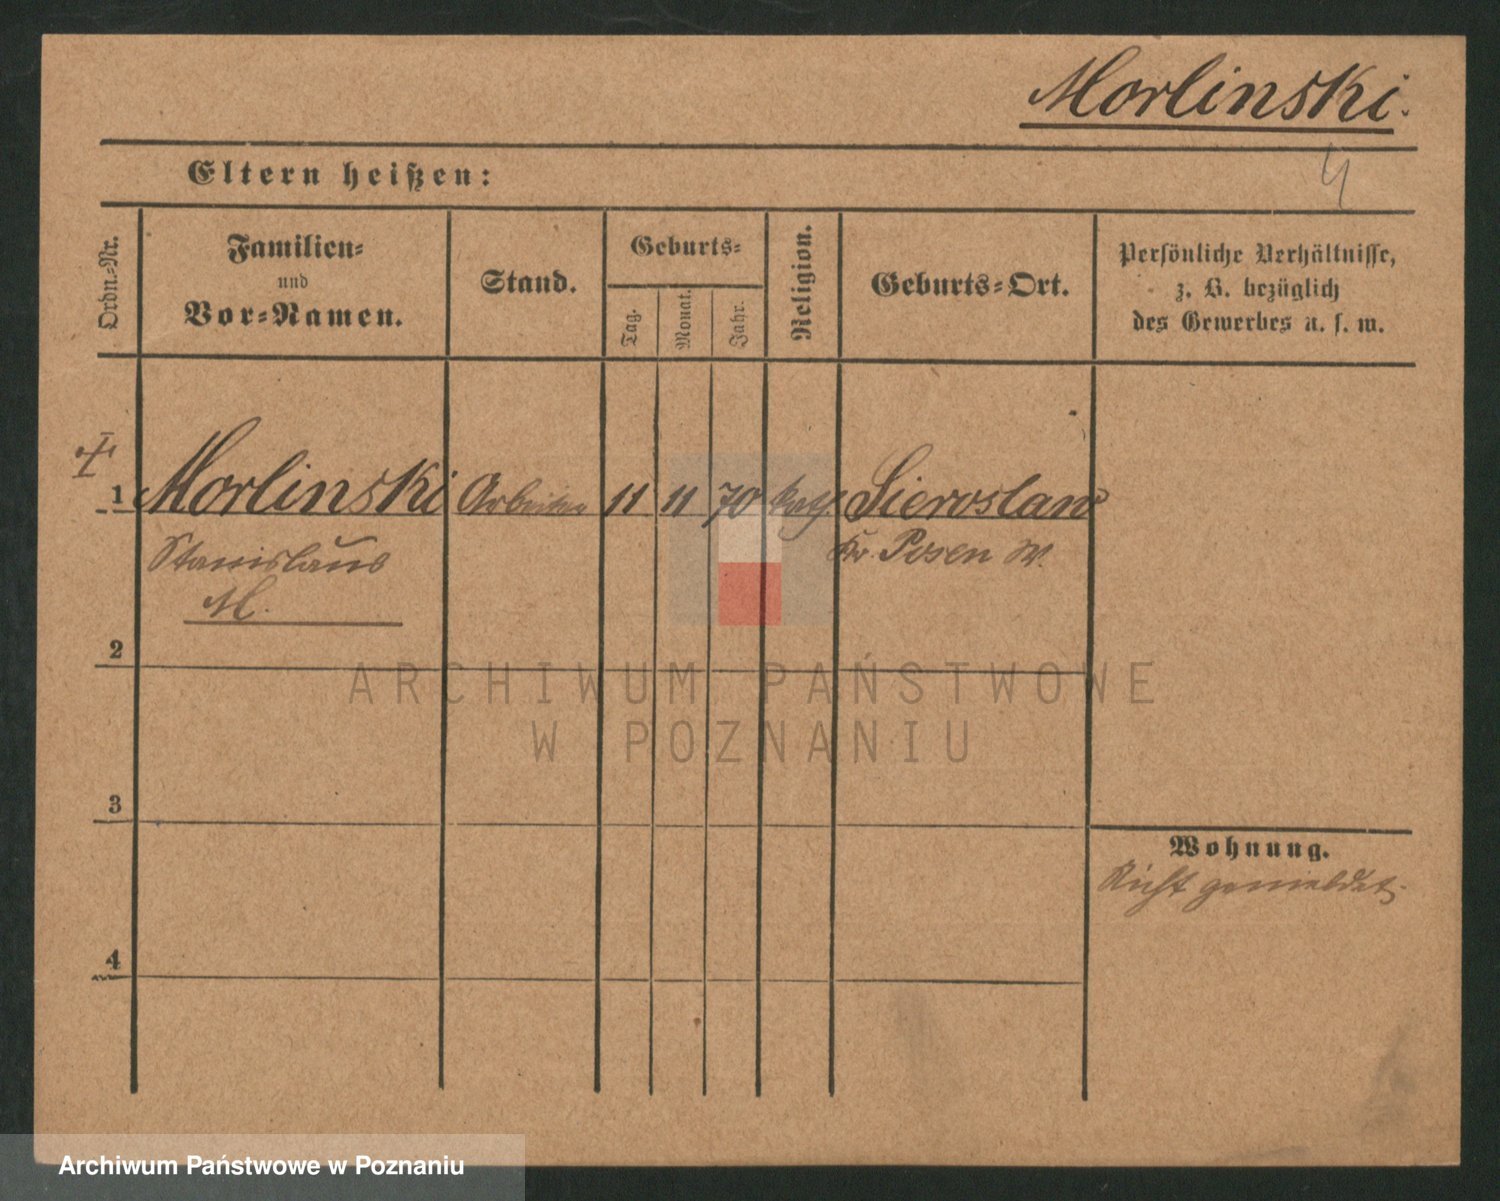 Morlinski.
4
Eltern heißen:
Ordn.-Nr.
Familien-
und
Vor-Namen.
Stand.
Geburts-
Tag.
Monat.
Jahr.
Religion.
Geburts-Ort.
Persönliche Verhältnisse,
z. B. bezüglich
des Gewerbes u. s. w.
1 Morlinski Arbeiter 11 11 70 kath. Sieroslaw
Stanislaus Kr. Posen W.
M.
2
ARCHIWUM PAŃSTWOWE
W POZNANIU
3
Wohnung.
Nicht gemeldet.
4
Archiwum Państwowe w Poznaniu